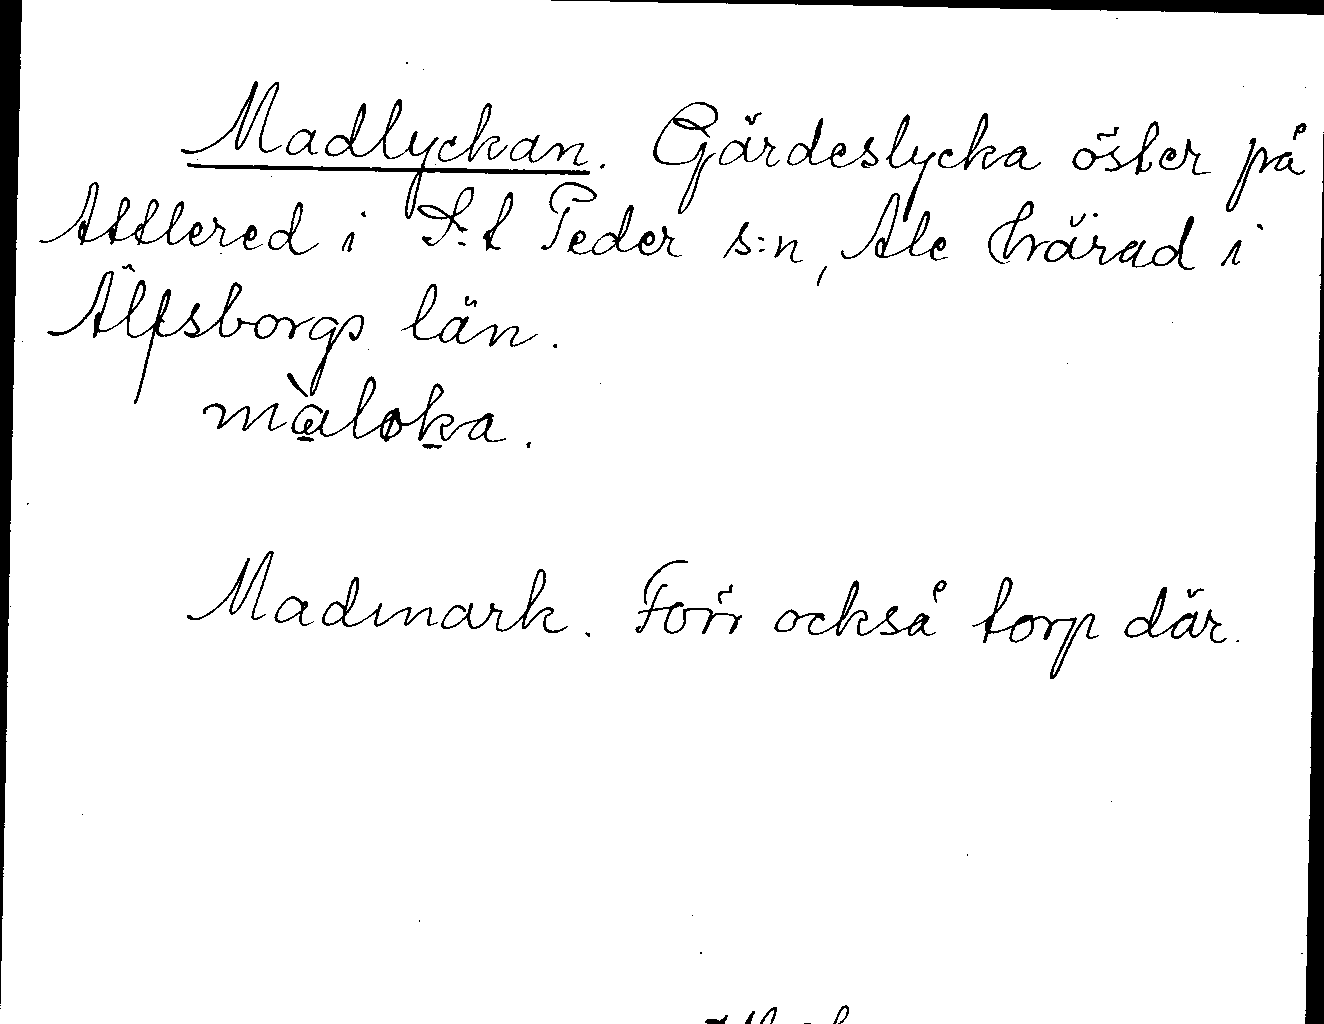 Madlyckan. Gärdeslycka öster på
Attlered i S:t Peder s:n, Ale härad i
Älfsborgs län.
màloka.
Madmark. Förr också torp där.